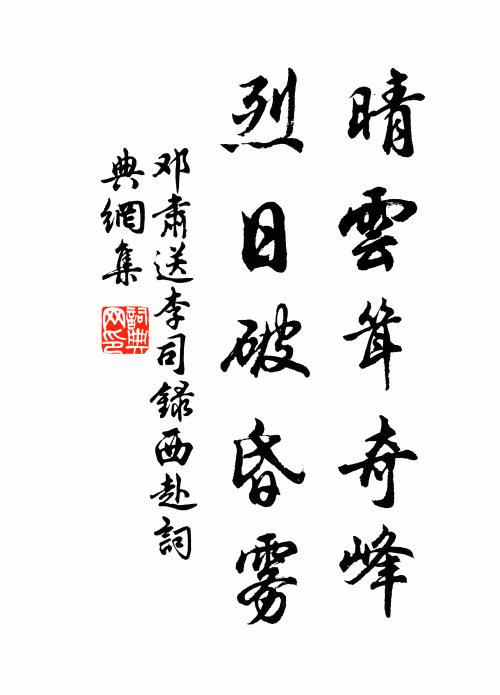 晴雲聳奇峰
烈日破昏霧
邓肅送李司録西赴詞
典網集
詞典
网印